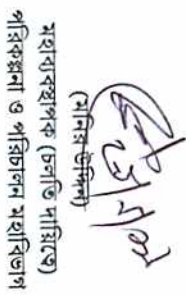 (মনির উদ্দিন)
মহাব্যবস্থাপক (চলতি দায়িত্বে)
পরিকল্পনা ও পরিচালন মহাবিভাগ